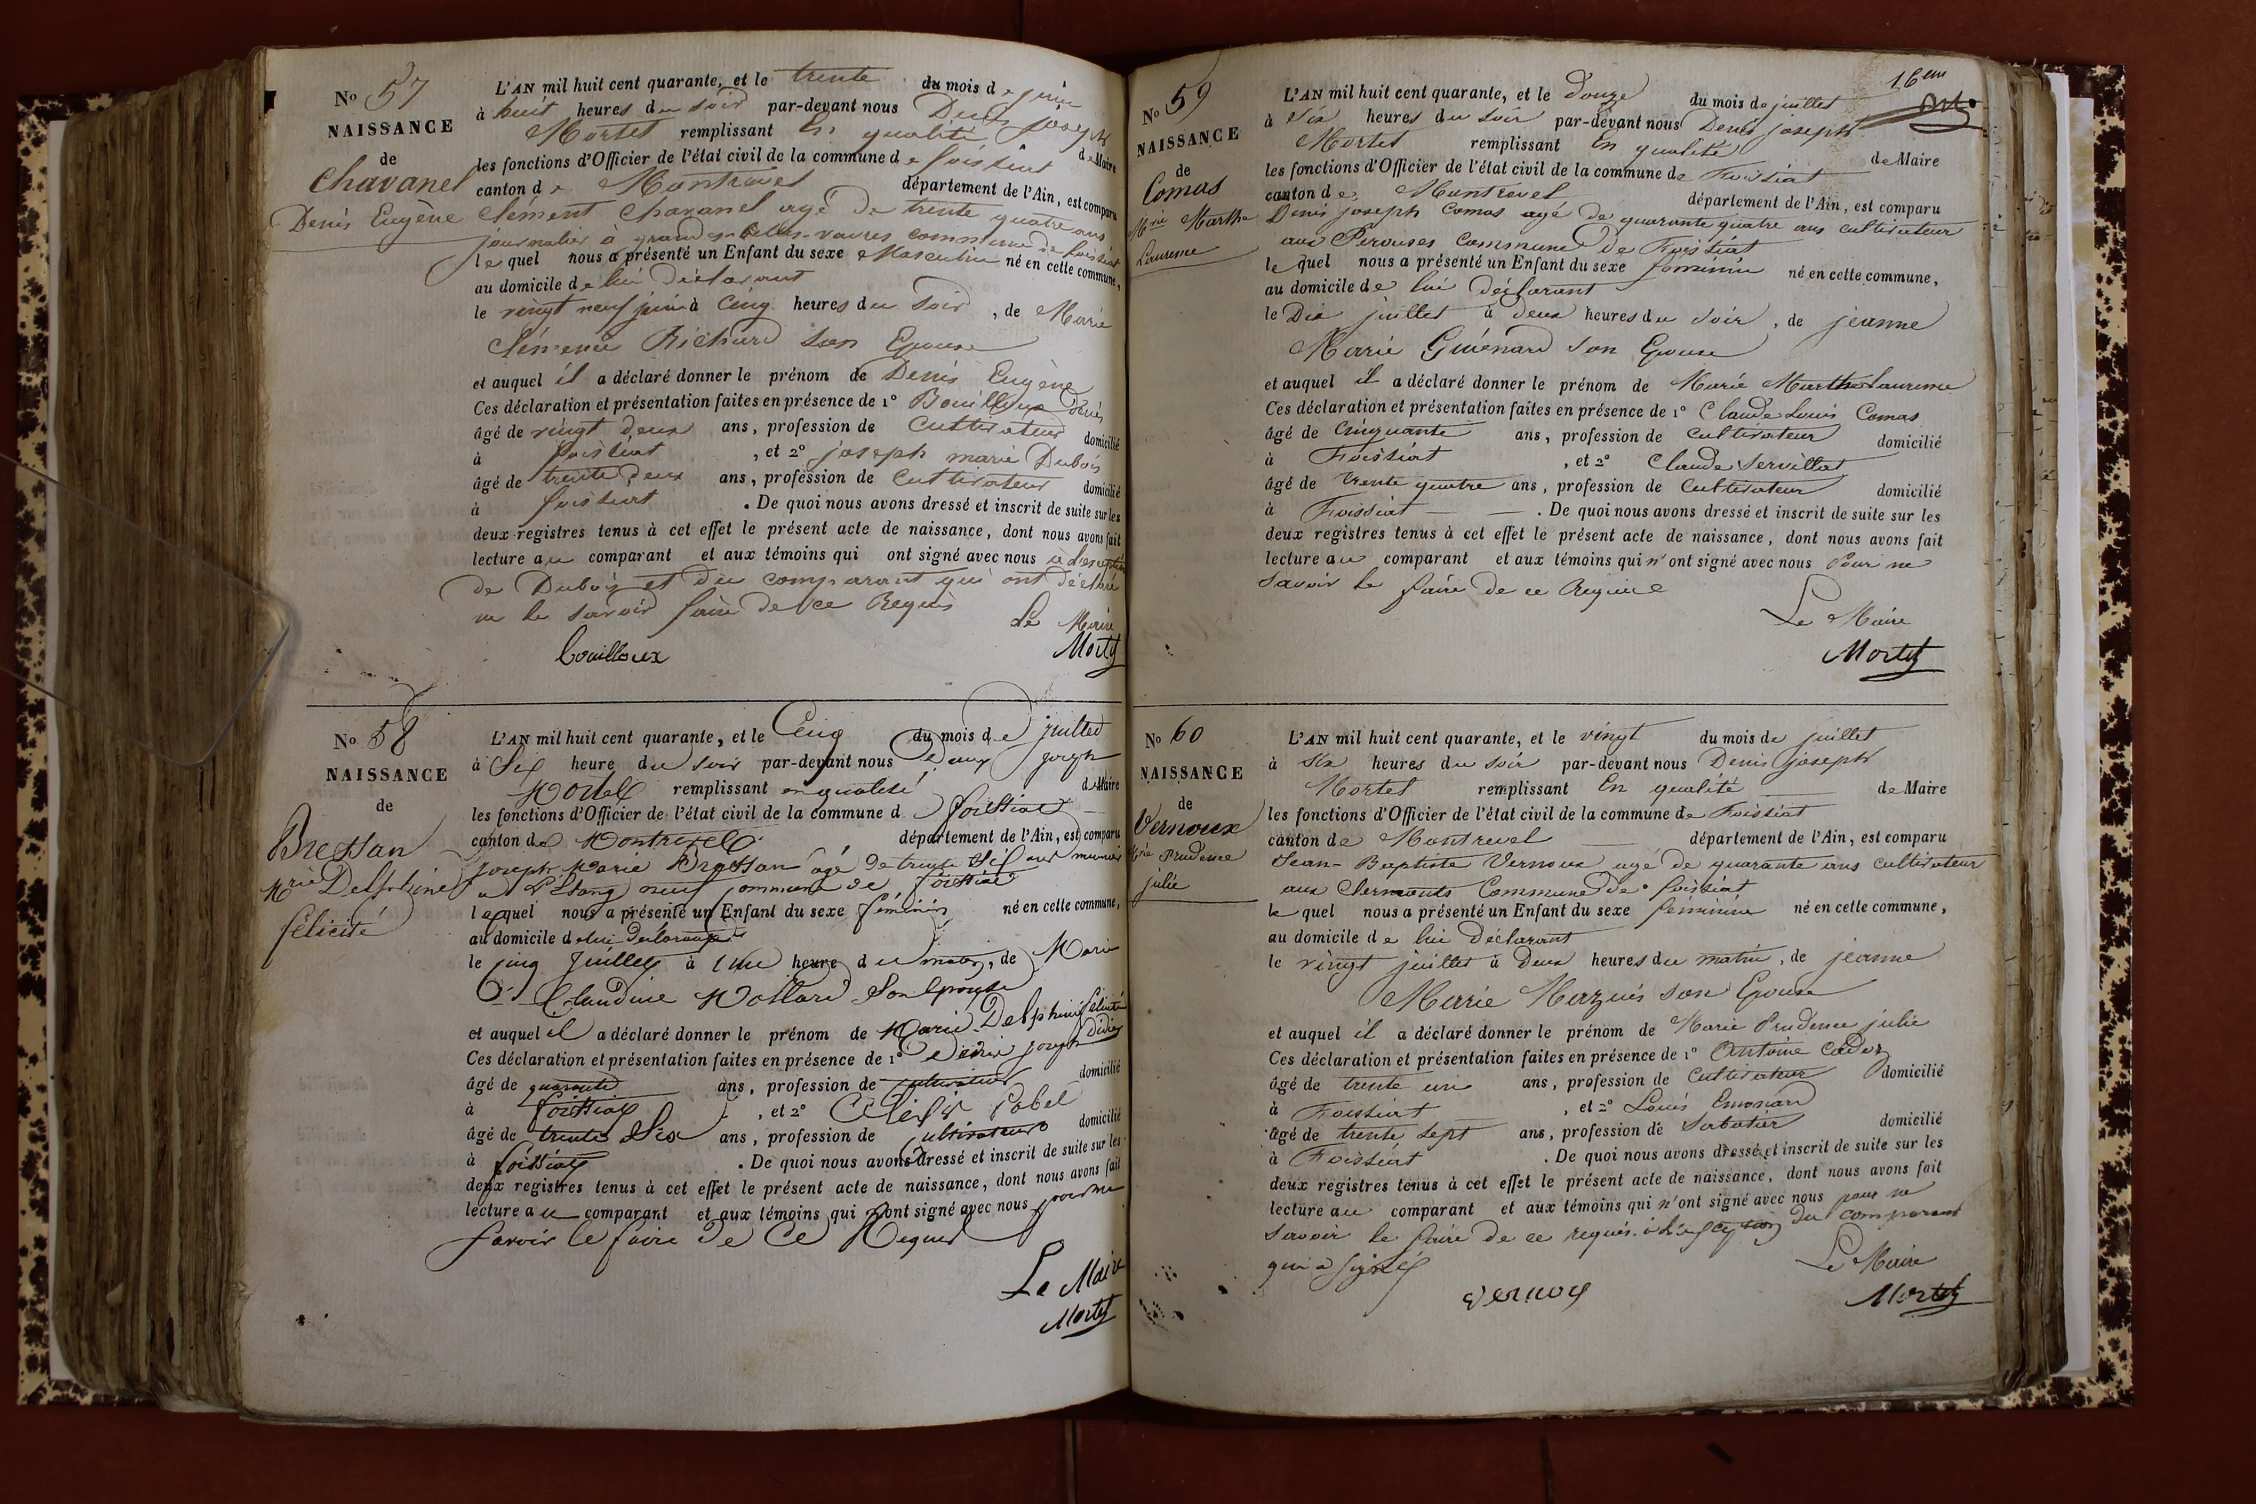 No 57
NAISSANCE
de
Chavanel
Denis Eugène
L'AN mil huit cent quarante, et le trente du mois de juin
à huit heures du soir par-devant nous Denis joseph
Mortel remplissant En qualité de Maire
les fonctions d'Officier de l'état civil de la commune de foissiat
canton de Montrevel département de l'Ain, est comparu
Clément Chavanel agé de trente quatre ans
journalier à grand commune de foissiat
lequel nous a présenté un Enfant du sexe Masculin né en cette commune,
au domicile de lui Déclarant
le vingt neuf juin à Cinq heures du Soir, de Marie
Clémence Richard Son Epouse
et auquel il a déclaré donner le prénom de Denis Eugène
Ces déclaration et présentation faites en présence de 1° Bouilloux Denis
âgé de vingt deux ans, profession de Cultivateur domicilié
à foissiat, et 2° joseph marie Dubois
âgé de trente deux ans, profession de Cultivateur domicilié
à foissiat. De quoi nous avons dressé et inscrit de suite sur les
deux registres tenus à cet effet le présent acte de naissance, dont nous avons fait
lecture au comparant et aux témoins qui ont signé avec nous
de Dubois et du comparant qui ont déclaré
ne le savoir faire de ce Requis
Le Maire
bouilloux Mortel
No 58
NAISSANCE
de
Bressan
Mrie Delphine
félicité
L'AN mil huit cent quarante, et le Cinq du mois de juillet
à Six heure du soir par-devant nous joseph
Mortel remplissant en qualité de Maire
les fonctions d'Officier de l'état civil de la commune d foissiat
canton de Montrevel département de l'Ain, est comparu
joseph Marie Bressan agé de trente Six ans meunier
a L'Etang neuf commune de foissiat
lequel nous a présenté un Enfant du sexe féminin né en cette commune,
au domicile de lui declarant
le cinq juillet à Une heure du matin, de Marie
Claudine Mollard Son Epouse
et auquel il a déclaré donner le prénom de Marie Delphine félicité
Ces déclaration et présentation faites en présence de 1° Denis joseph
âgé de quarante ans, profession de cultivateur domicilié
à foissiat, et 2° Pobel
âgé de trente Six ans, profession de cultivateur domicilié
à foissiat. De quoi nous avons dressé et inscrit de suite sur les
deux registres tenus à cet effet le présent acte de naissance, dont nous avons fait
lecture au comparant et aux témoins qui n'ont signé avec nous pour ne
savoir le faire de ce Requis
Le Maire
Mortel
16em
No 59
NAISSANCE
de
Comas
Mrie Marthe
Laurence
L'AN mil huit cent quarante, et le Douze du mois de juillet
à Six heures du soir par-devant nous Denis joseph
Mortel remplissant En qualité de Maire
les fonctions d'Officier de l'état civil de la commune de Foissiat
canton de Montrevel département de l'Ain, est comparu
Denis joseph Comas agé de quarante quatre ans cultivateur
aux Perouses Commune de Foissiat
le quel nous a présenté un Enfant du sexe féminin né en cette commune,
au domicile de lui déclarant
le Dix juillet à deux heures du Soir, de jeanne
Marie Guénard Son Epouse
et auquel il a déclaré donner le prénom de Marie Marthe Laurence
Ces déclaration et présentation faites en présence de 1° Claude Louis Comas
âgé de Cinquante ans, profession de Cultivateur domicilié
à Foissiat, et 2° Claude Servillat
âgé de trente quatre ans, profession de Cultivateur domicilié
à Foissiat. De quoi nous avons dressé et inscrit de suite sur les
deux registres tenus à cet effet le présent acte de naissance, dont nous avons fait
lecture au comparant et aux témoins qui n'ont signé avec nous Pour ne
Savoir le faire de ce Requis
Le Maire
Mortel
No 60
NAISSANCE
de
Vernoux
Mrie Prudence
julie
L'AN mil huit cent quarante, et le vingt du mois de juillet
à Six heures du soir par-devant nous Denis joseph
Mortel remplissant En qualité de Maire
les fonctions d'Officier de l'état civil de la commune de Foissiat
canton de Montrevel département de l'Ain, est comparu
Jean-Baptiste Vernoux agé de quarante ans cultivateur
aux Commune de foissiat
le quel nous a présenté un Enfant du sexe féminin né en cette commune,
au domicile de lui Déclarant
le vingt juillet à Deux heures du matin, de jeanne
Marie Mazuis son Epouse
et auquel il a déclaré donner le prénom de Marie Prudence julie
Ces déclaration et présentation faites en présence de 1° Antoine
âgé de trente un ans, profession de Cultivateur domicilié
à Foissiat, et 2° Louis
âgé de trente sept ans, profession de Sabotier domicilié
à Foissiat. De quoi nous avons dressé et inscrit de suite sur les
deux registres tenus à cet effet le présent acte de naissance, dont nous avons fait
lecture au comparant et aux témoins qui n'ont signé avec nous pour ne
Savoir le faire de ce requis à l'exception du comparant
qui a signé
Le Maire
Mortel